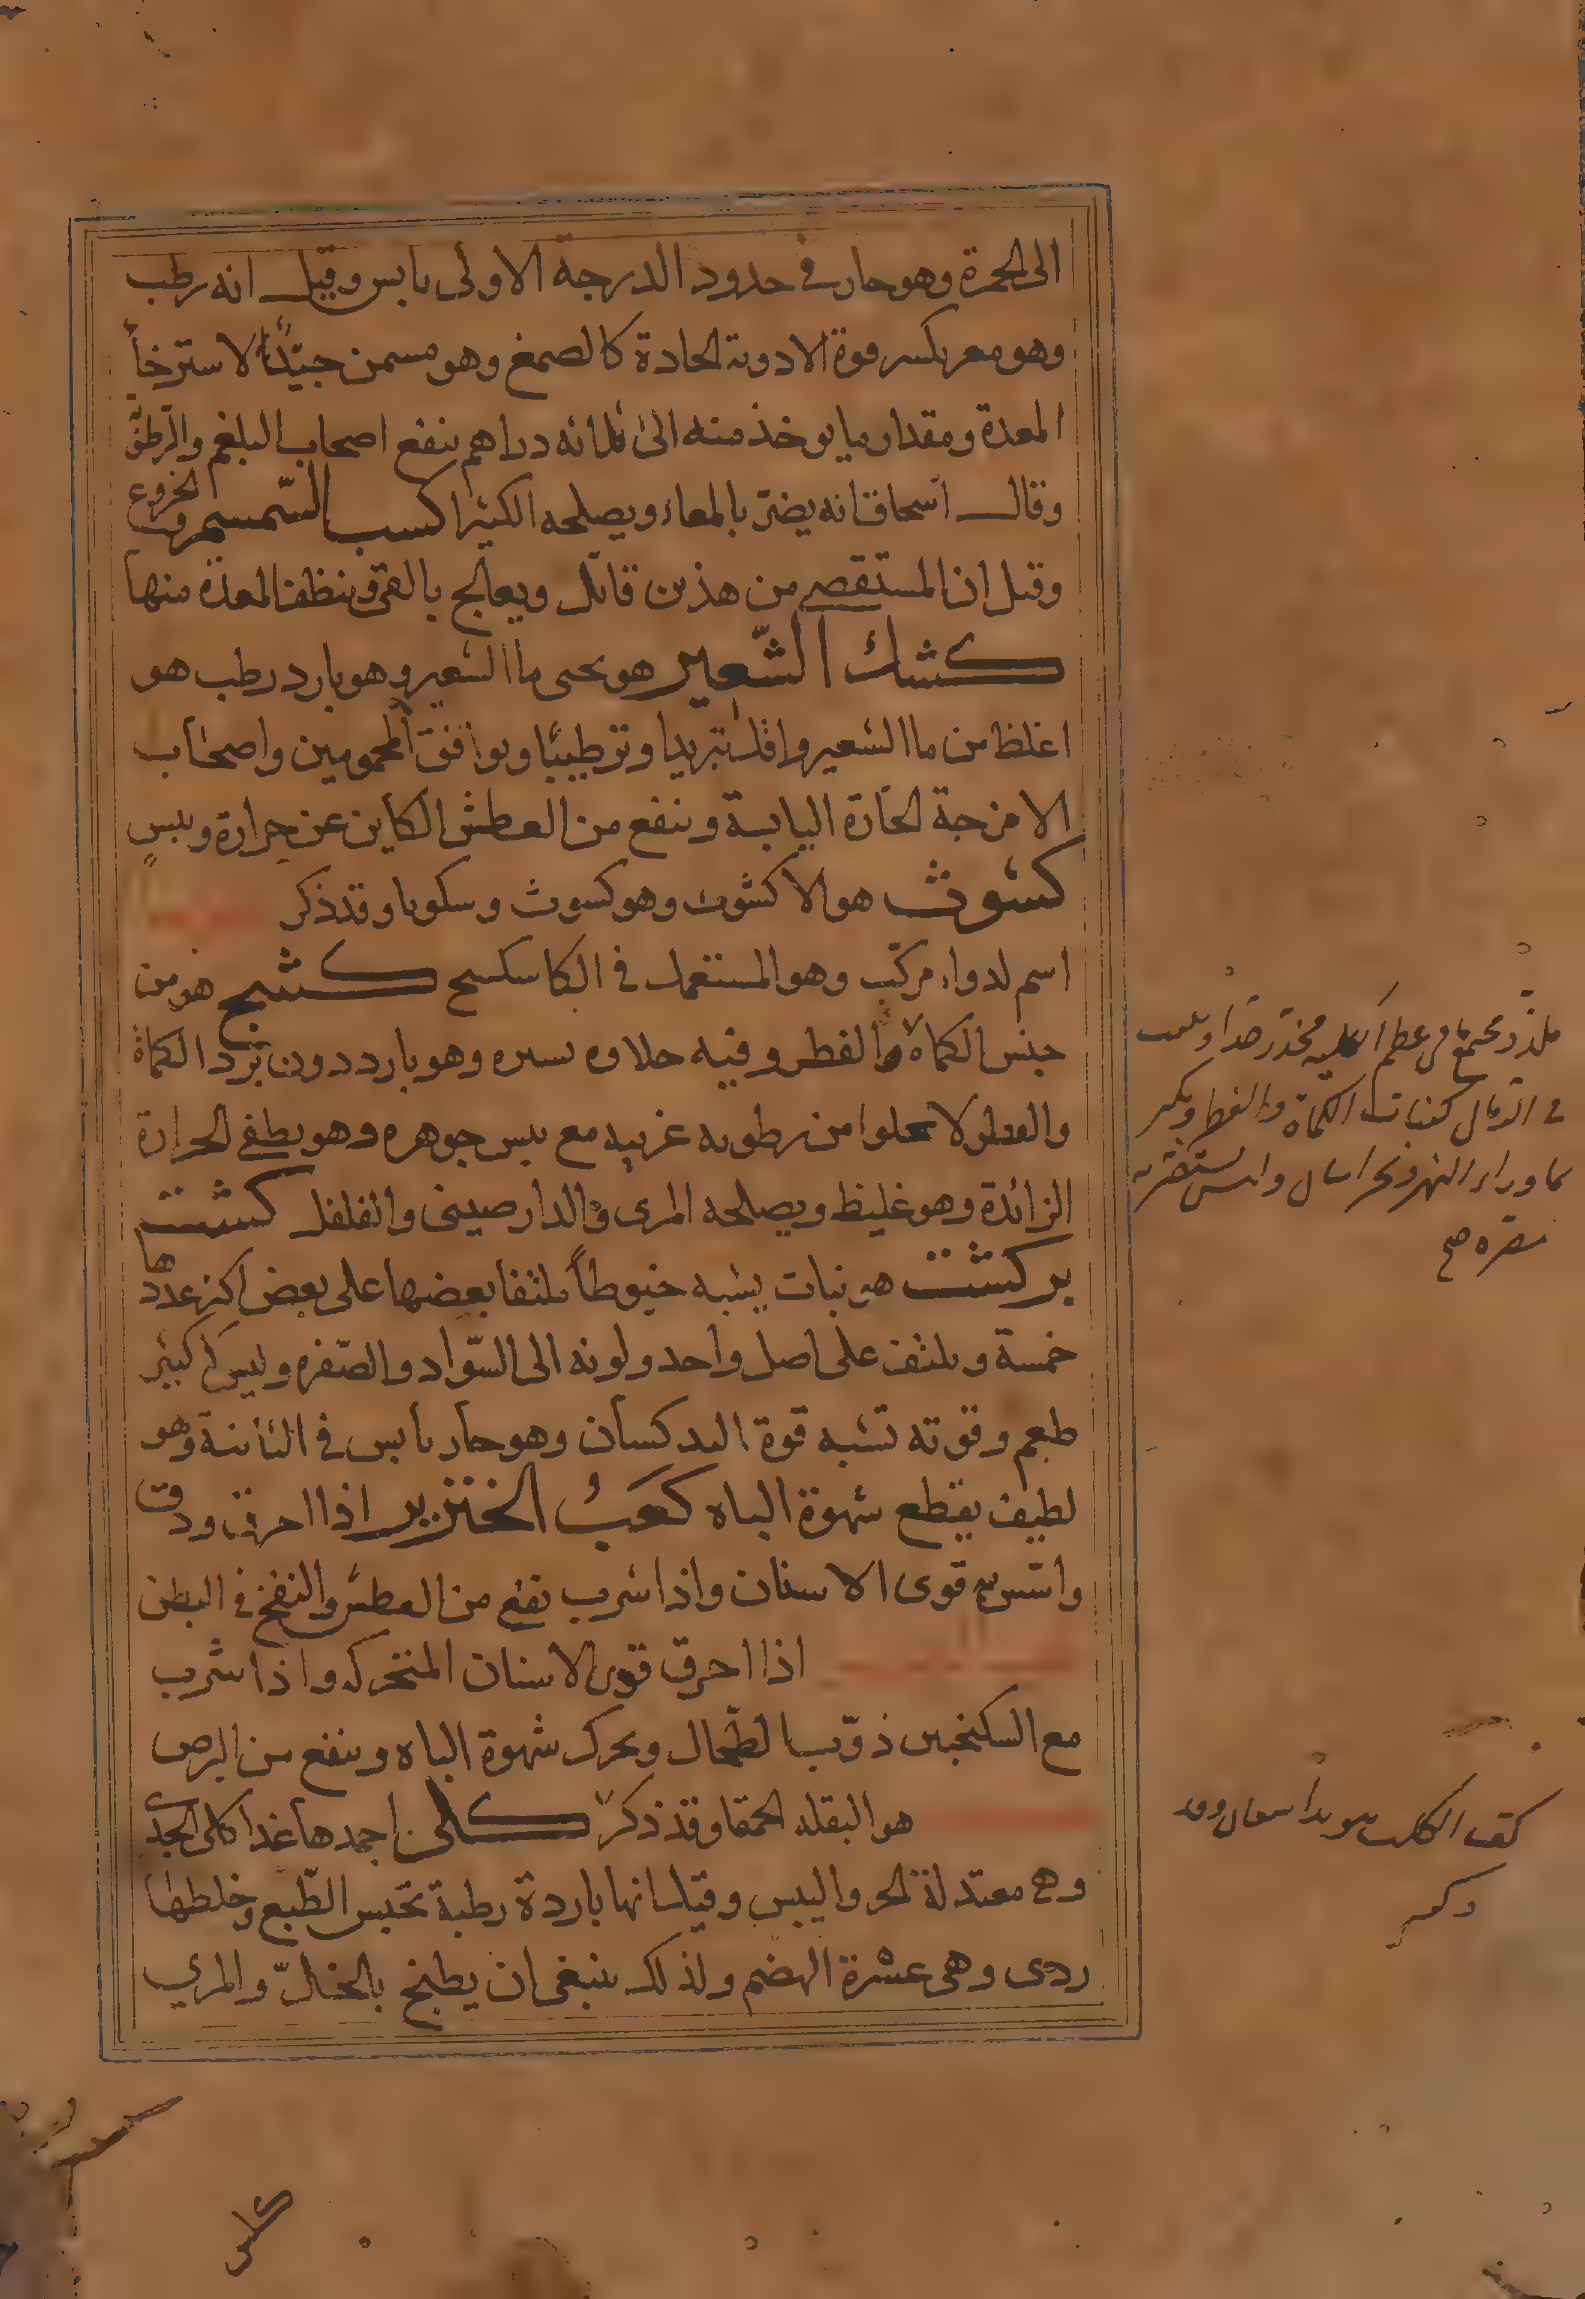 الى الحمرة وهو حار في حدود الدرجة الاولى يابس وقيل انه رطب
وهو معر يكسر قوة الادوية الحادة كالصمغ وهو مسمن جيد لاسترخاء
المعدة ومقدار ما يوخذ منه الى ثلاثة دراهم ينفع اصحاب البلغم والرطوبة
وقال اسحاق انه يضر بالمعاء ويصلحه الكثيرا كسب السمسم والخروع
وقيل ان المستقصى من هذين قاتل ويعالج بالقى وينظف المعدة منها
كشك الشعير هو يحيى ما الشعير وهو بارد رطب هو
اغلظ من ما الشعير واقل تبريدا وترطيبا ويوافق المحمومين واصحاب
الامزجة الحارة اليابسة وينفع من العطش الكاين عن حرارة ويبس
كشوث هو الاكشوث وهو كسوث وسكوبا وقد ذكر
اسم لدواء مركب وهو المستعمل في الكاسكسح كشنج هو من
جنس الكماة والفطر وفيه حلاوه يسيره وهو بارد دون برد الكماة
والفطر ولا يخلوا من رطوبه غريبه مع يبس جوهره وهو يطفى الحرارة
الزائدة وهو غليظ ويصلحه المرى والدارصينى والفلفل كشت
بركشت هو نبات يشبه خيوطاً ملتفا بعضها على بعض اكثر عددها
خمسة ويلتف على اصل واحد ولونه الى السواد والصفره وليس له كبير
طعم وقوته تشبه قوة البدكسان وهو حار يابس في الثانية وهو
لطيف يقطع شهوة الباه كعب الخنزير اذا احرق ودق
واستن به قوى الاسنان واذا شرب نفع من العطش والنفخ في البطن
اذا احرق قوى الاسنان المتحركه واذا شرب
مع السكنجبين ذوب الطحال ويحرك شهوة الباه وينفع من البرص
هو البقله الحمقا وقد ذكر كلى احمدها غذا كلى الجدى
وهى معتدلة الحر واليبس وقيل انها باردة رطبة تحبس الطبع وخلطها
ردى وهى عسرة الهضم ولذلك ينبغى ان يطبخ بالخل والمرى
في الرمال كنبات الكماة والفطر ويكثر
بما وراء النهر وخراسان
كف الكلب هو